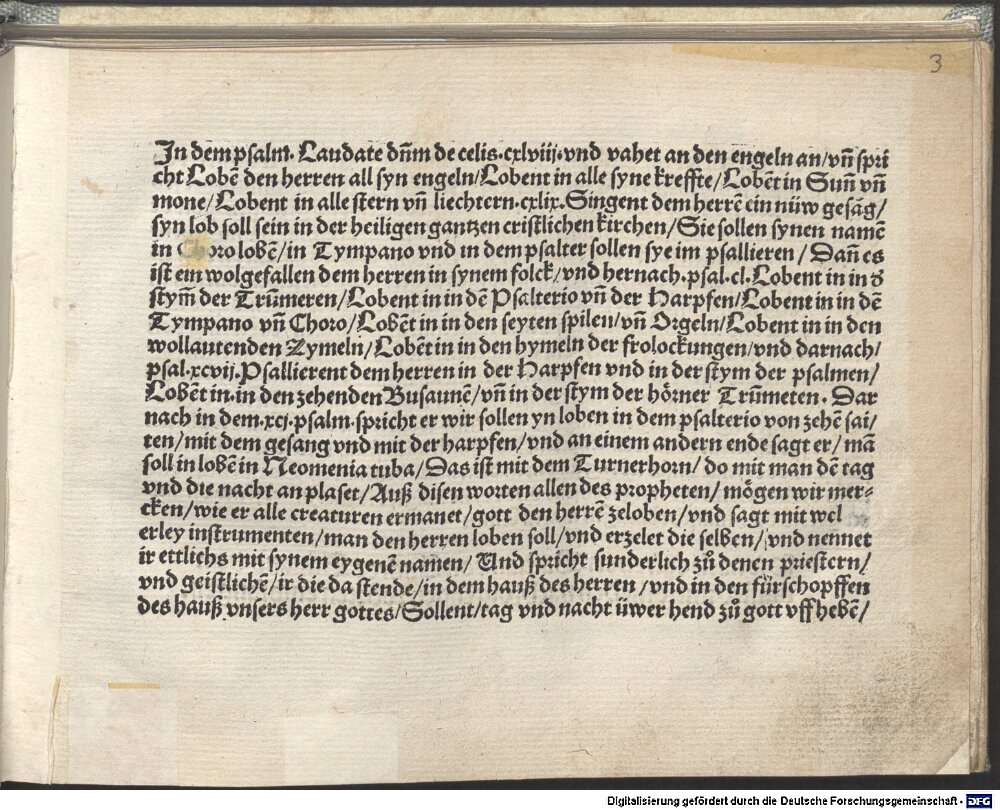 3
In dem psalm. Laudate dn̄m de celis.cxlviij.vnd vahet an den engeln an/vn̄ spri
cht Lobē den herren all syn engeln/Lobent in alle syne kreffte/Lobēt in Sun̄ vn̄
mone/Lobent in alle stern vn̄ liechtern.cxlix.Singent dem herrē ein nüw gesāg/
syn lob soll sein in der heiligen gantzen cristlichen kirchen/Sie sollen synen namē
in Choro lobē/in Tympano vnd in dem psalter sollen sye im psallieren/Dan̄ es
ist ein wolgefallen dem herren in synem folck/vnd hernach.psal.cl.Lobent in in d̕
stym̄ der Trūmeren/Lobent in in dē Psalterio vn̄ der Harpfen/Lobent in in dē
Tympano vn̄ Choro/Lobēt in in den seyten spilen/vn̄ Orgeln/Lobent in in den
wollautenden Zymeln/Lobēt in in den hymeln der frolockungen/vnd darnach/
psal.xcvij.Psallierent dem herren in der Harpfen vnd in der stym der psalmen/
Lobēt in.in den zehenden Busaunē/vn̄ in der stym der hörner Trūmeten. Dar
nach in dem.xcj.psalm.spricht er wir sollen yn loben in dem psalterio von zehē sai/
ten/mit dem gesang vnd mit der harpfen/vnd an einem andern ende sagt er/mā
soll in lobē in Neomenia tuba/Das ist mit dem Turnerhorn/do mit man dē tag
vnd die nacht an plaset/Auß disen worten allen des propheten/mögen wir mer⸗
cken/wie er alle creaturen ermanet/gott den herrē zeloben/vnd sagt mit wel
erley instrumenten/man den herren loben soll/vnd erzelet die selben/vnd nennet
ir ettlichs mit synem eygenē namen/Und spricht sunderlich zů denen priestern/
vnd geistlichē/ir die da stende/in dem hauß des herren/vnd in den fürschopffen
des hauß vnsers herr gottes/Sollent/tag vnd nacht üwer hend zů gott vff hebē/
Digitalisierung gefördert durch die Deutsche Forschungsgemeinschaft - DFG